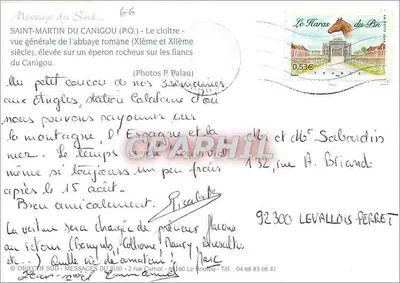 Message du Sud...
66
SAINT-MARTIN DU CANIGOU (P.O.) - Le cloître -
vue générale de l'abbaye romane (XIème et XIIème
siècle), élevée sur un éperon rocheux sur les flancs
du Canigou.
(Photos P. Palau)
Le Haras du Pin
0,53€
FRANCE
Un petit coucou de nos 3 semaines
aux Angles, station Catalane d'où
nous pouvons rayonner sur
la montagne, l'Espagne et la
mer. Le temps est
même si toujours un peu frais
après le 15 août.
Bien amicalement.
La voiture sera chargée de précieux flacons
au retour (Banyuls, Collioure, Maury,
etc...) Quelle vie de amateur!
Jean-noël Emmanuel Marc
Mr et Me Sabardin
132, rue A. Briand
92300 LEVALLOIS-PERRET
CPARPHIL
© OBJECTIF SUD - MESSAGES DU SUD - 2 rue Carnot - 66160 Le Boulou - Tél. : 04 68 83 08 41